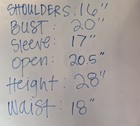 SHOULDERS: 16"
BUST: 20"
Sleeve: 17"
Open: 20.5"
Height: 28"
Waist: 18"